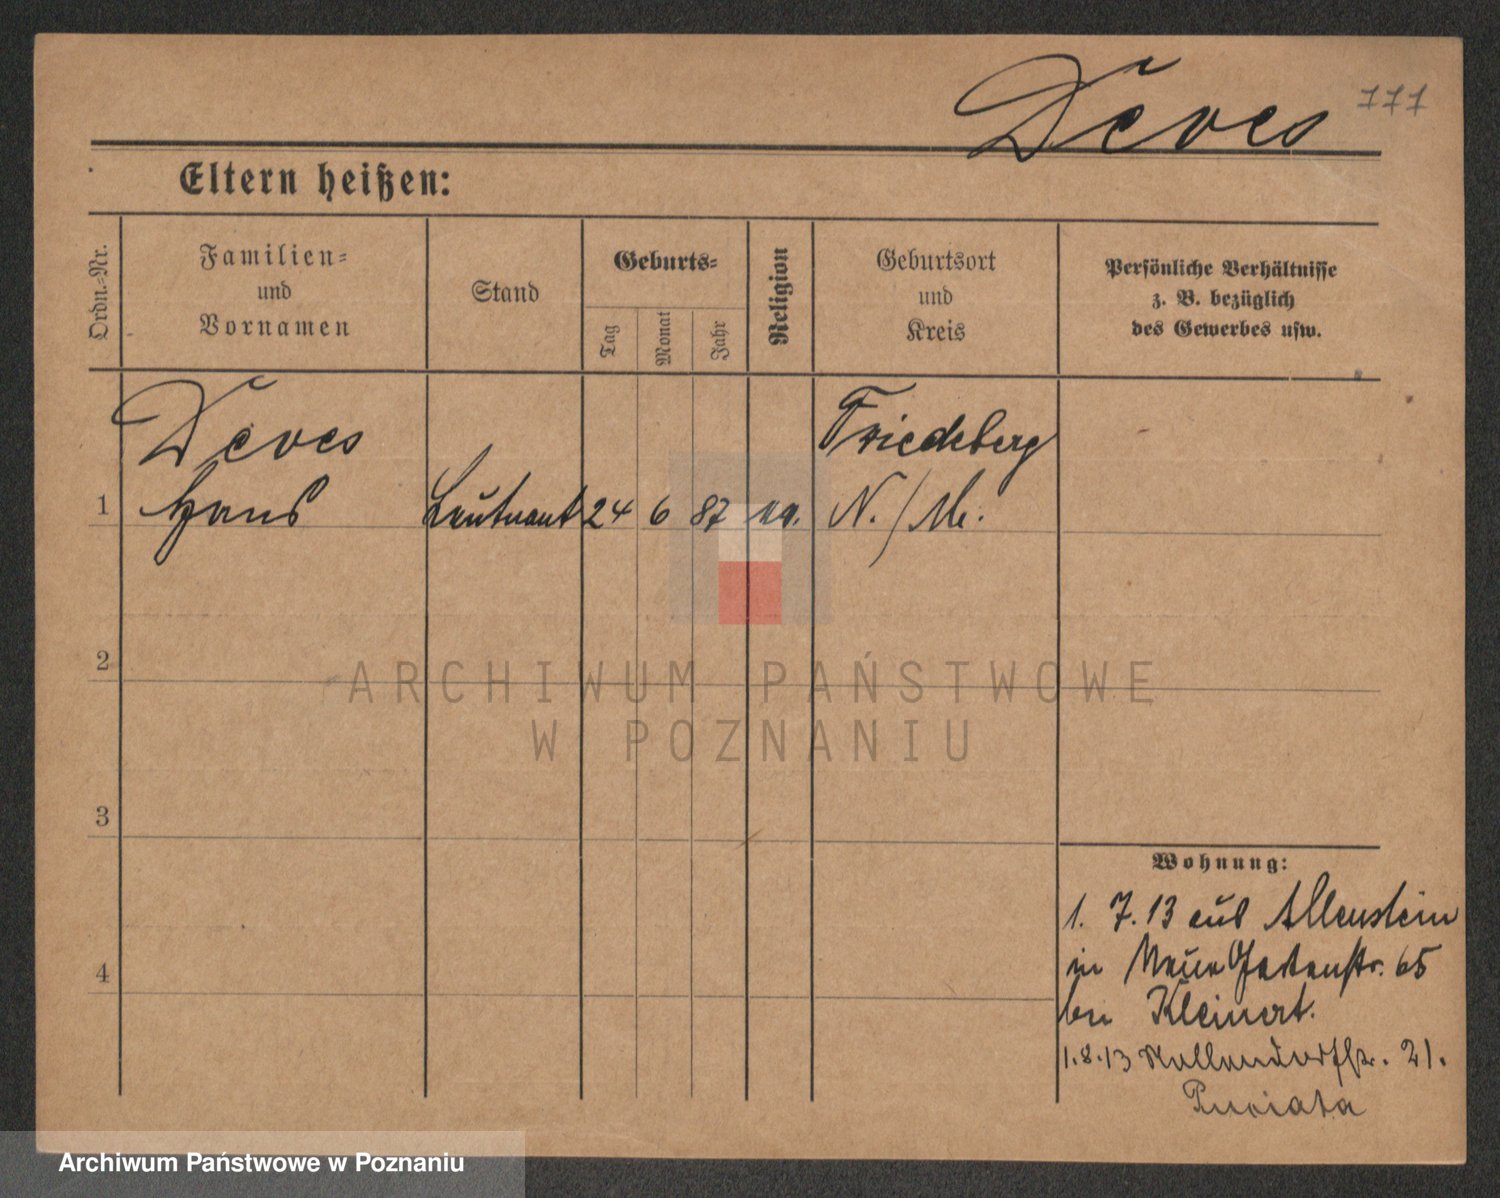 Deves 111
Eltern heißen:
Ordn.-Nr.
Familien-
und
Vornamen
Stand
Geburts-
Tag
Monat
Jahr
Religion
Geburtsort
und
Kreis
Persönliche Verhältnisse
z. B. bezüglich
des Gewerbes usw.
Deves
Friedeberg
1 Hans Leutnant 24 6 87 N./M.
2
3
4
Wohnung:
1. 7. 13 aus Allenstein
in Neue Gartenstr. 65
bei Kleinert.
1.8.13 21.
ARCHIWUM PAŃSTWOWE
W POZNANIU
Archiwum Państwowe w Poznaniu